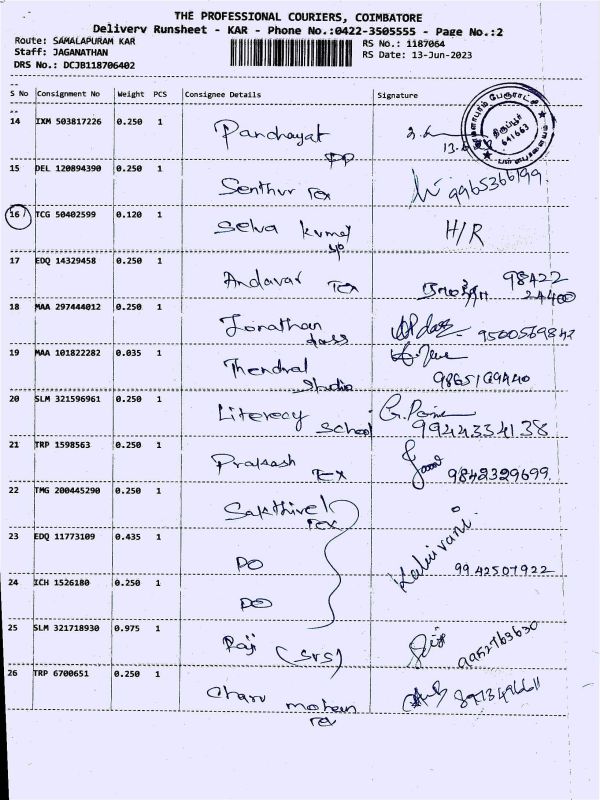 THE PROFESSIONAL COURIERS, COIMBATORE
Delivery Runsheet - KAR - Phone No.:0422-3505555 - Page No.:2
Route: SAMALAPURAM KAR
RS No.: 1187064
Staff: JAGANATHAN
RS Date: 13-Jun-2023
DRS No.: DCJB118706402
S No Consignment No Weight PCS Consignee Details Signature
14 IXM 503817226 0.250 1 Panchayat
திருப்பூர்
641663
15 DEL 120894390 0.250 1 Senthur Tex 9965366199
16 TCG 50402599 0.120 1 Selva Kumar H/R
17 EDQ 14329458 0.250 1 Andavar Tex 98422
24400
18 MAA 297444012 0.250 1 Jonathan
dass 9500569842
19 MAA 101822282 0.035 1 Thendral
Studio
20 SLM 321596961 0.250 1 Literecy School 9944334138
21 TRP 1598563 0.250 1 Prakash Tex 9842329699.
22 TMG 200445290 0.250 1 Sakthivel
Tex
23 EDQ 11773109 0.435 1 DO Kalaivani
9942507922
24 ICH 1526180 0.250 1 DO
25 SLM 321718930 0.975 1 Raji (SVS) 9952763630
26 TRP 6700651 0.250 1 Charu mohan
Tex